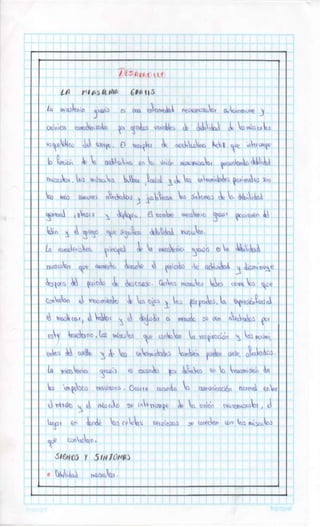 DESARROLLO
LA MIASTENIA GRAVIS
La miastenia gravis es una enfermedad neuromuscular autoinmune y
crónica caracterizada por grados variables de debilidad de los músculos
esqueléticos del cuerpo. El receptor de acetilcolina AchR que interrumpe
la función de la acetilcolina en la unión neuromuscular presentando debilidad
muscular. Los músculos bulbar facial y de las extremidades proximales son
los más comunes afectados y los síntomas de la debilidad
general, ptosis y diplopia. El nombre miastenia gravis proviene del
latín y el griego que significa debilidad muscular.
La característica principal de la miastenia gravis es la debilidad
muscular que aumenta durante el periodo de actividad y disminuye
después del periodo de descanso. Ciertos músculos tales como los que
controlan el movimiento de los ojos y los párpados, la expresión facial
el masticar, el hablar y el deglutir a menudo se ven afectados por
este trastorno. Los músculos que controlan la respiración y los movim.
entos del cuello y de las extremidades también pueden verse afectados.
La miastenia gravis es causada por defectos en la transmisión de
los impulsos nerviosos. Ocurre cuando la comunicación normal entre
el nervio y el músculo se interrumpe en la unión neuromuscular, el
lugar en donde las células nerviosas se conectan con los músculos
que controlan.
SIGNOS Y SINTOMAS
• Debilidad muscular.